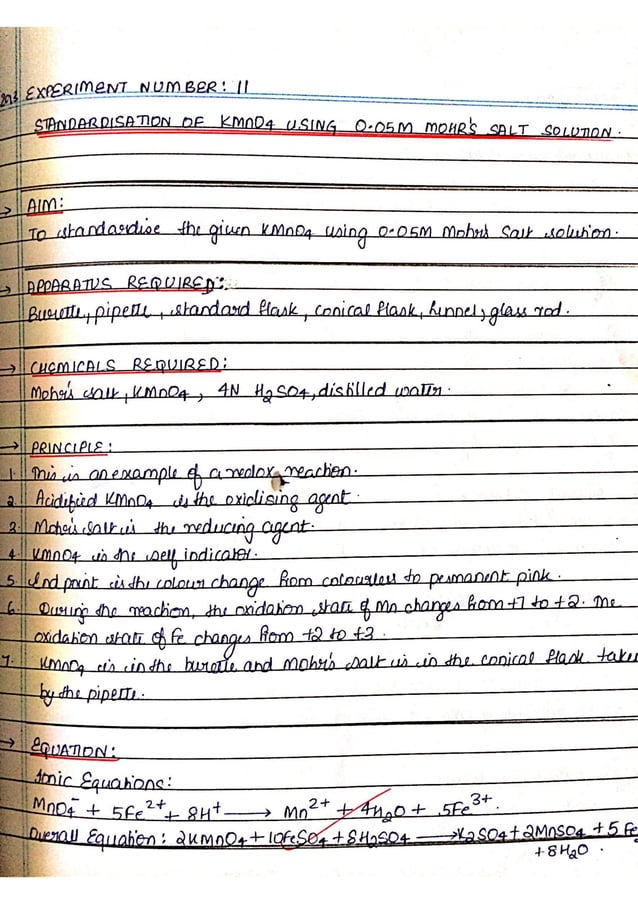 EXPERIMENT NUMBER: 11
STANDARDISATION OF KMnO4 USING 0.05M MOHR'S SALT SOLUTION.
→ AIM:
To standardise the given KMnO4 using 0.05M Mohr's Salt solution.
→ APPARATUS REQUIRED:
Burette, pipette, standard flask, conical flask, funnel, glass rod.
→ CHEMICALS REQUIRED:
Mohr's salt, KMnO4, 4N H2SO4, distilled water.
→ PRINCIPLE:
1. This is an example of a redox reaction.
2. Acidified KMnO4 is the oxidising agent.
3. Mohr's salt is the reducing agent.
4. KMnO4 is the self indicator.
5. End point is the colour change from colourless to permanent pink.
6. During the reaction, the oxidation state of Mn changes from +7 to +2. The
oxidation state of Fe changes from +2 to +3.
7. KMnO4 is in the burette and Mohr's salt is in the conical flask taken
by the pipette.
→ EQUATION:
Ionic Equations:
MnO4⁻ + 5Fe²⁺ + 8H⁺ → Mn²⁺ + 4H2O + 5Fe³⁺.
Overall Equation: 2KMnO4 + 10FeSO4 + 8H2SO4 → K2SO4 + 2MnSO4 + 5Fe2
+ 8H2O.